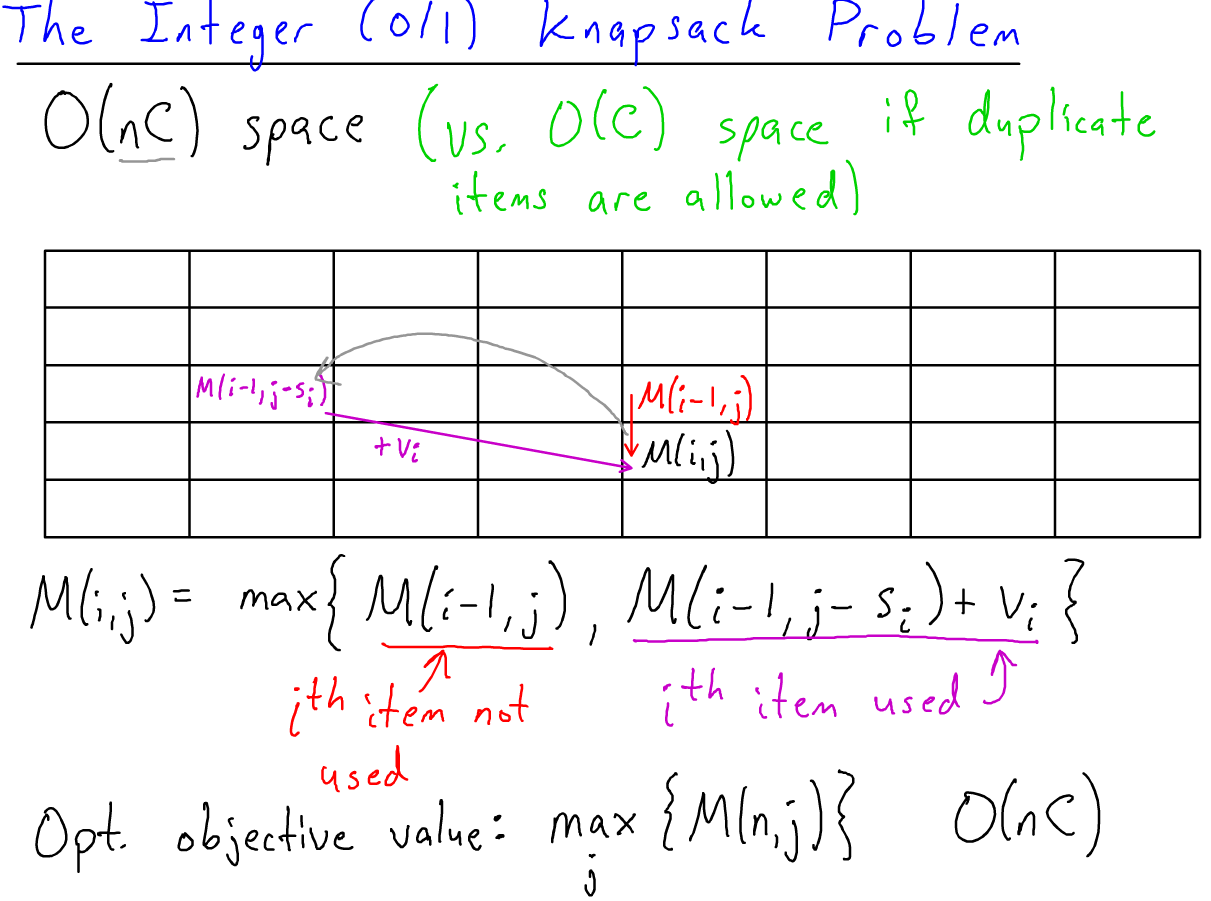 The Integer (0/1) Knapsack Problem
O(nC) space (vs. O(C) space if duplicate
items are allowed)
M(i-1, j-sᵢ)
M(i-1, j)
+vᵢ
M(i,j)
M(i,j) = max{ M(i-1, j), M(i-1, j-sᵢ) + vᵢ }
iᵗʰ item not
used
iᵗʰ item used
Opt. objective value: max {M(n,j)} O(nC)
j